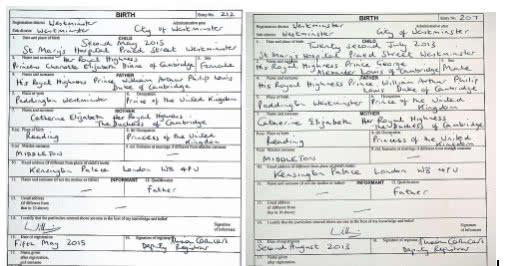 BIRTH
Entry No. 212
Registration district Westminster
Administrative area
Sub-district Westminster
City of Westminster
CHILD
1. Date and place of birth
Second May 2015
St Mary's Hospital Praed Street Westminster
2. Name and surname
Her Royal Highness
3. Sex
Princess Charlotte Elizabeth Diana of Cambridge
Female
FATHER
4. Name and surname
His Royal Highness Prince William Arthur Philip Louis
Duke of Cambridge
5. Place of birth
Paddington Westminster
6. Occupation
Prince of the United
Kingdom
MOTHER
7. Name and surname
Catherine Elizabeth Her Royal Highness
The Duchess of Cambridge
8. Place of birth
Reading
Occupation
Princess of the United
Kingdom
Maiden surname
MIDDLETON
10. Usual address
Kensington Palace London W8 4PU
INFORMANT
Qualification
Father
13. Usual address
14. I certify that the particulars entered above are true to the best of my knowledge and belief
Signature
of informant
15. Date of registration
Fifth May 2015
16. Signature of registrar
Deputy Registrar
17. Name given
after registration,
and surname
BIRTH
Entry No. 207
Registration district Westminster
Administrative area
Sub-district Westminster
City of Westminster
CHILD
1. Date and place of birth
Twenty second July 2013
St Mary's Hospital Praed Street Westminster
2. Name and surname
His Royal Highness Prince George
3. Sex
Alexander Louis of Cambridge
Male
FATHER
4. Name and surname
His Royal Highness Prince William Arthur Philip
Louis Duke of Cambridge
5. Place of birth
Paddington Westminster
6. Occupation
Prince of the United
Kingdom
MOTHER
7. Name and surname
Catherine Elizabeth Her Royal Highness
The Duchess of Cambridge
Place of birth
Reading
Occupation
Princess of the United
Kingdom
Maiden surname
MIDDLETON
10. Usual address
Kensington Palace London W8 4PU
INFORMANT
Qualification
Father
13. Usual address
14. I certify that the particulars entered above are true to the best of my knowledge and belief
Signature
of informant
15. Date of registration
Second August 2013
16. Signature of registrar
Deputy Registrar
17. Name given
after registration,
and surname